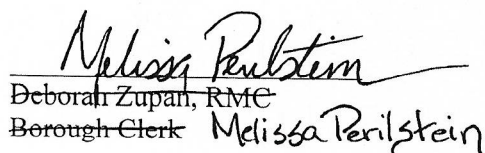 Melissa Perilstein
Deborah Zupan, RMC
Borough Clerk Melissa Perilstein